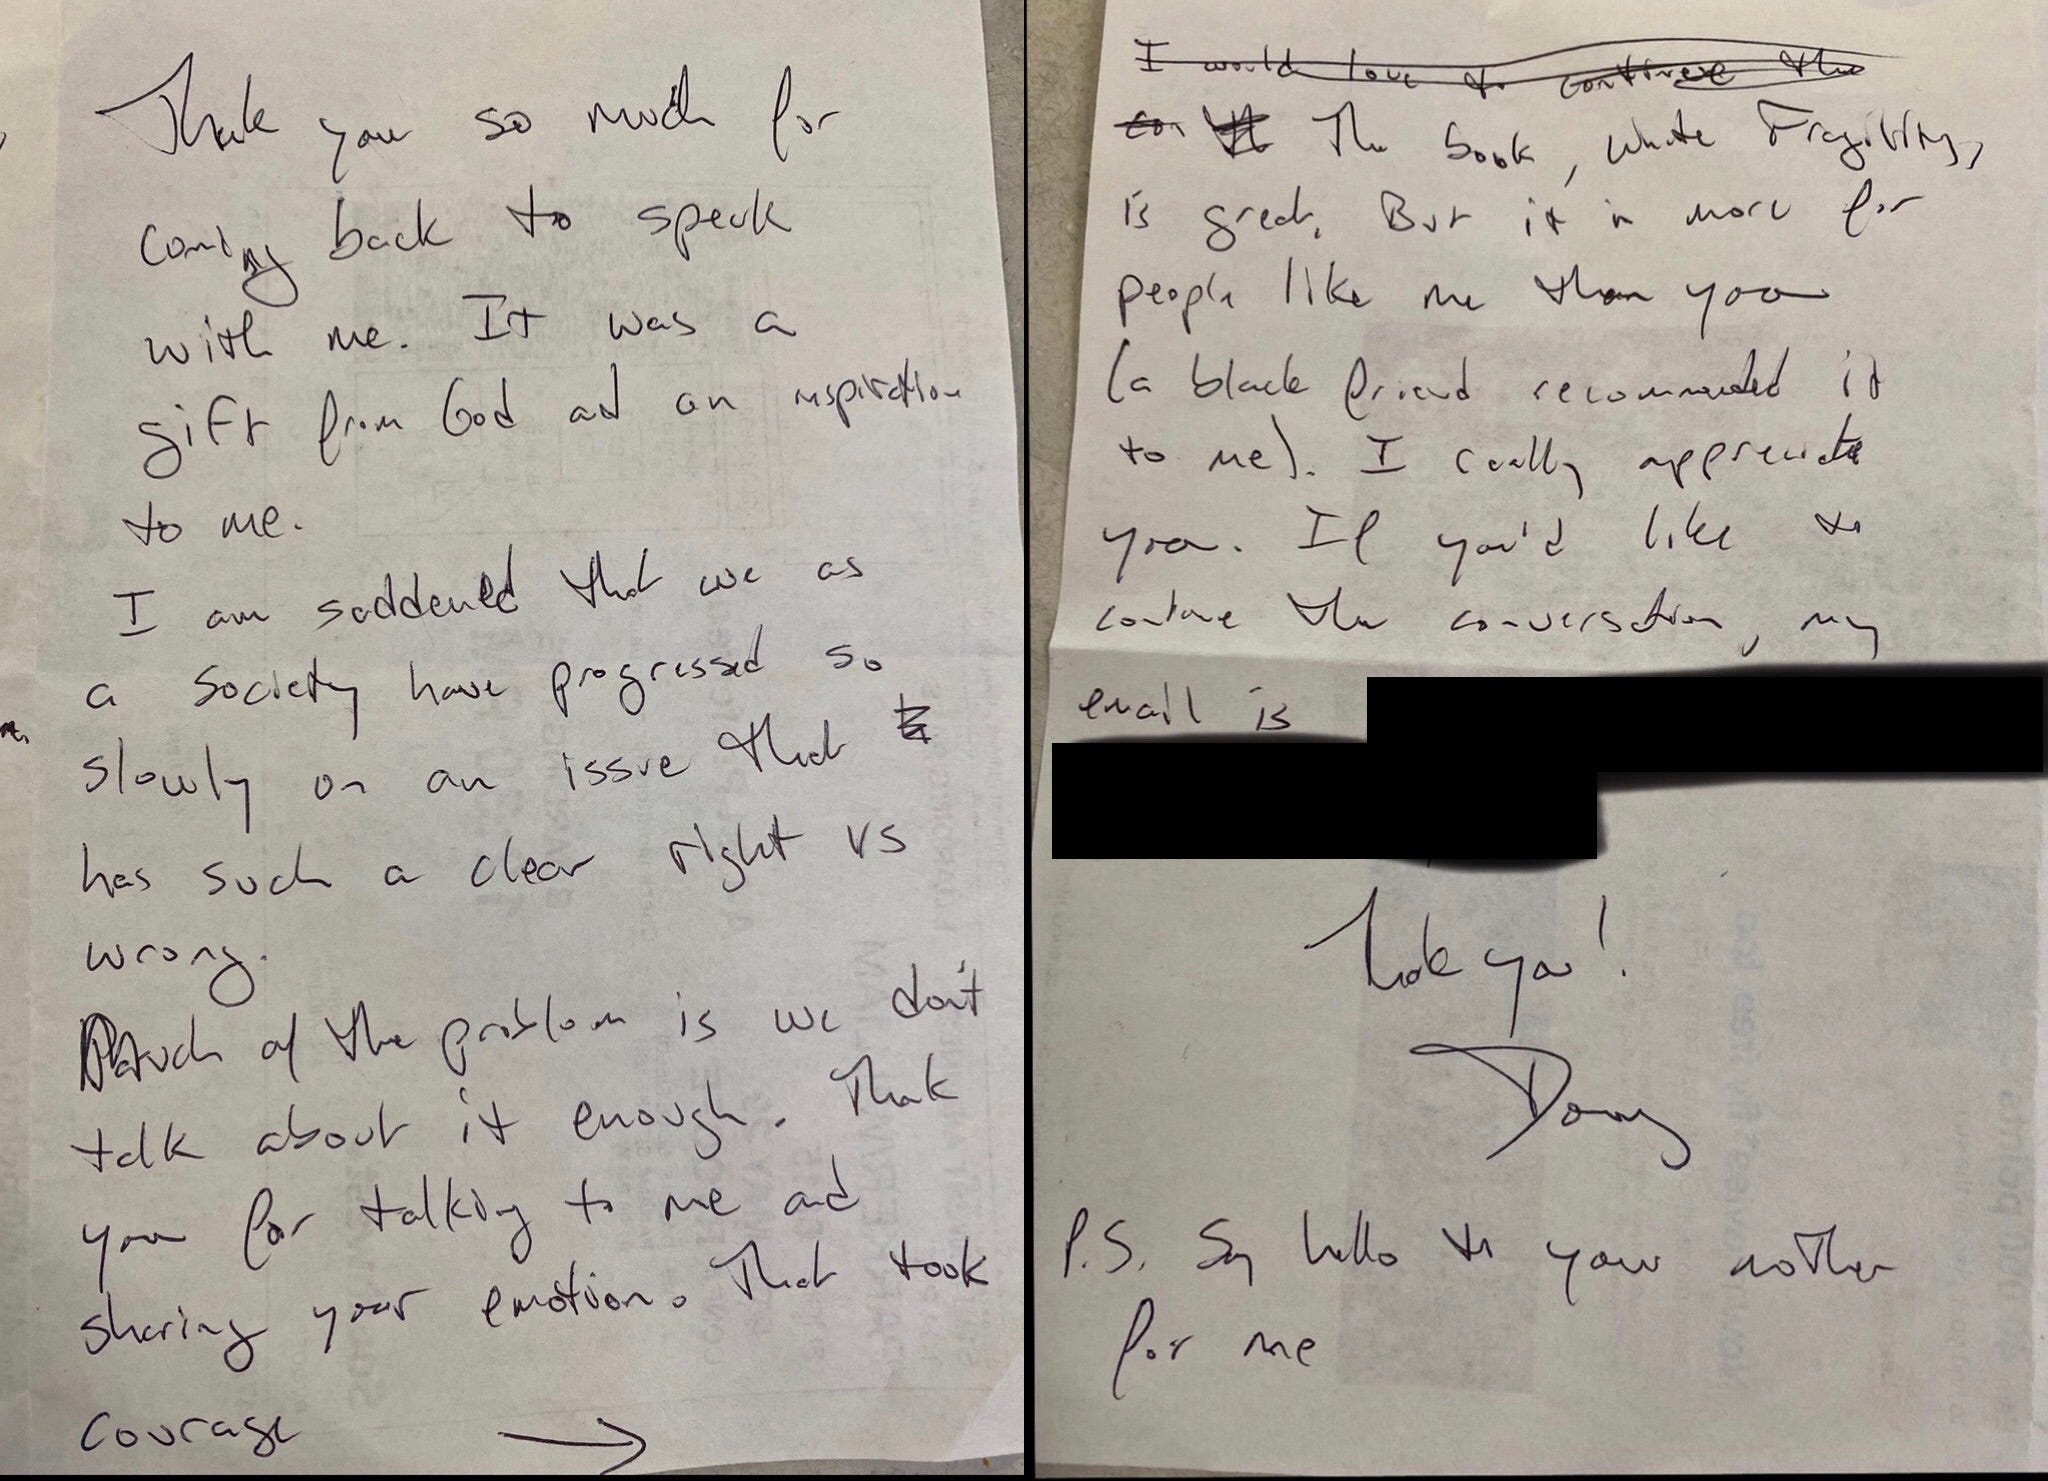 Thank you so much for
coming back to speak
with me. It was a
gift from God and an inspiration
to me.
I am saddened that we as
a society have progressed so
slowly on an issue that
has such a clear right vs
wrong.
Much of the problem is we don't
talk about it enough. Thank
you for talking to me and
sharing your emotion. That took
courage →
I would love to continue the
con The book, White Fragility,
is great. But it is more for
people like me than you
(a black friend recommended it
to me). I really appreciate
you. If you'd like to
continue the conversation, my
email is
Thank you!
P.S. Say hello to your mother
for me